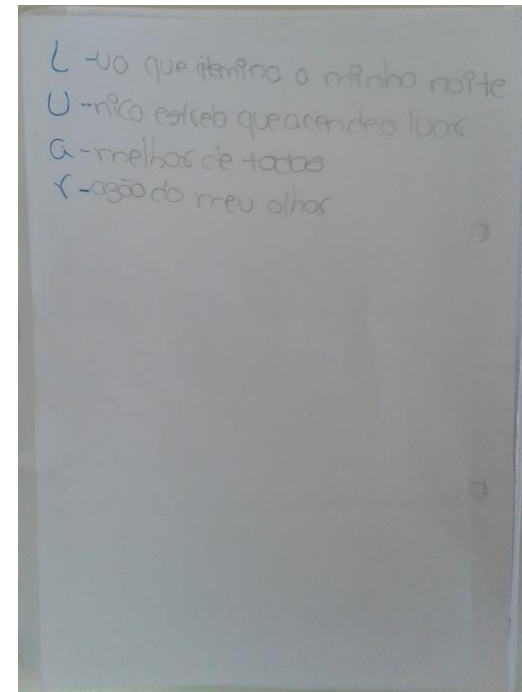 L -ua que ilumina a minha noite
U -nica estrela que acende o luar
a -melhor de todas
r -azão do meu olhar